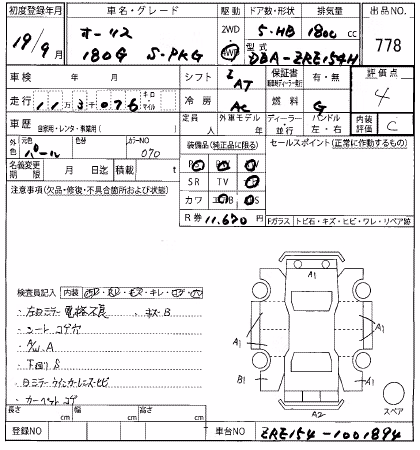 初度登録年月 車名・グレード 駆動 ドア数・形状 排気量 出品NO.
19/9月 オーリス 2WD 5-HB 1800 cc 778
180G S-PKG 4WD 型式 DBA-ZRE154H
車検 年 月 シフト AT 保証書 有・無 評価点
走行 11万3千076 キロ マイル 冷房 AC 燃料 G 4
車歴 自家用・レンタ・事業用( ) 定員 人 外車モデル 年 ディーラー・並行 ハンドル 左・右 内装評価 C
外色 元色 パール 色替 カラーNO 070 装備品(純正品に限る) セールスポイント(正常に動作するもの)
名義変更期限 月 日迄 積載 t PS PW
注意事項(欠品・修復・不具合箇所および状態) SR TV
カワ エアB
R券 11,670円 Fガラス トビ石・キズ・ヒビ・ワレ・リペア跡
A1
検査員記入 内装 キレ
・左ドミラー電格不良 ・キズB
・シートコゲ穴
・A/W.A
・下回りS
・カーペットコゲ
A1 A1
B1 A1
A2
スペア
長さ cm 幅 cm 高さ cm
登録NO 車台NO ZRE154-1001894